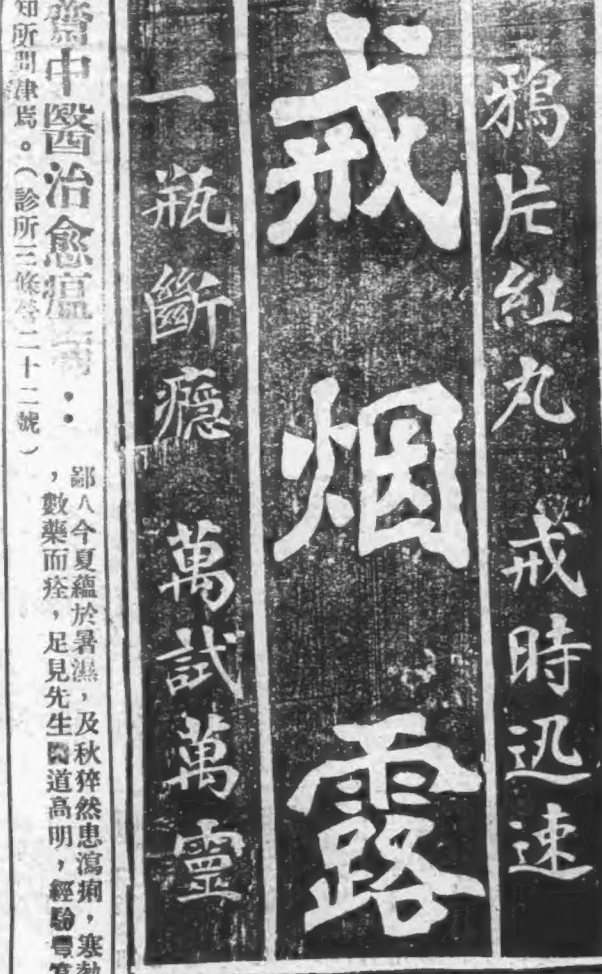 鴉片紅丸 戒時迅速
戒烟露
一瓶斷癮 萬試萬靈
中醫治愈
鄙人今夏蘊於暑濕，及秋猝然患瀉痢，寒熱
，數藥而痊，足見先生醫道高明，經驗豐富
知所問津焉。（診所三條 二十二號）